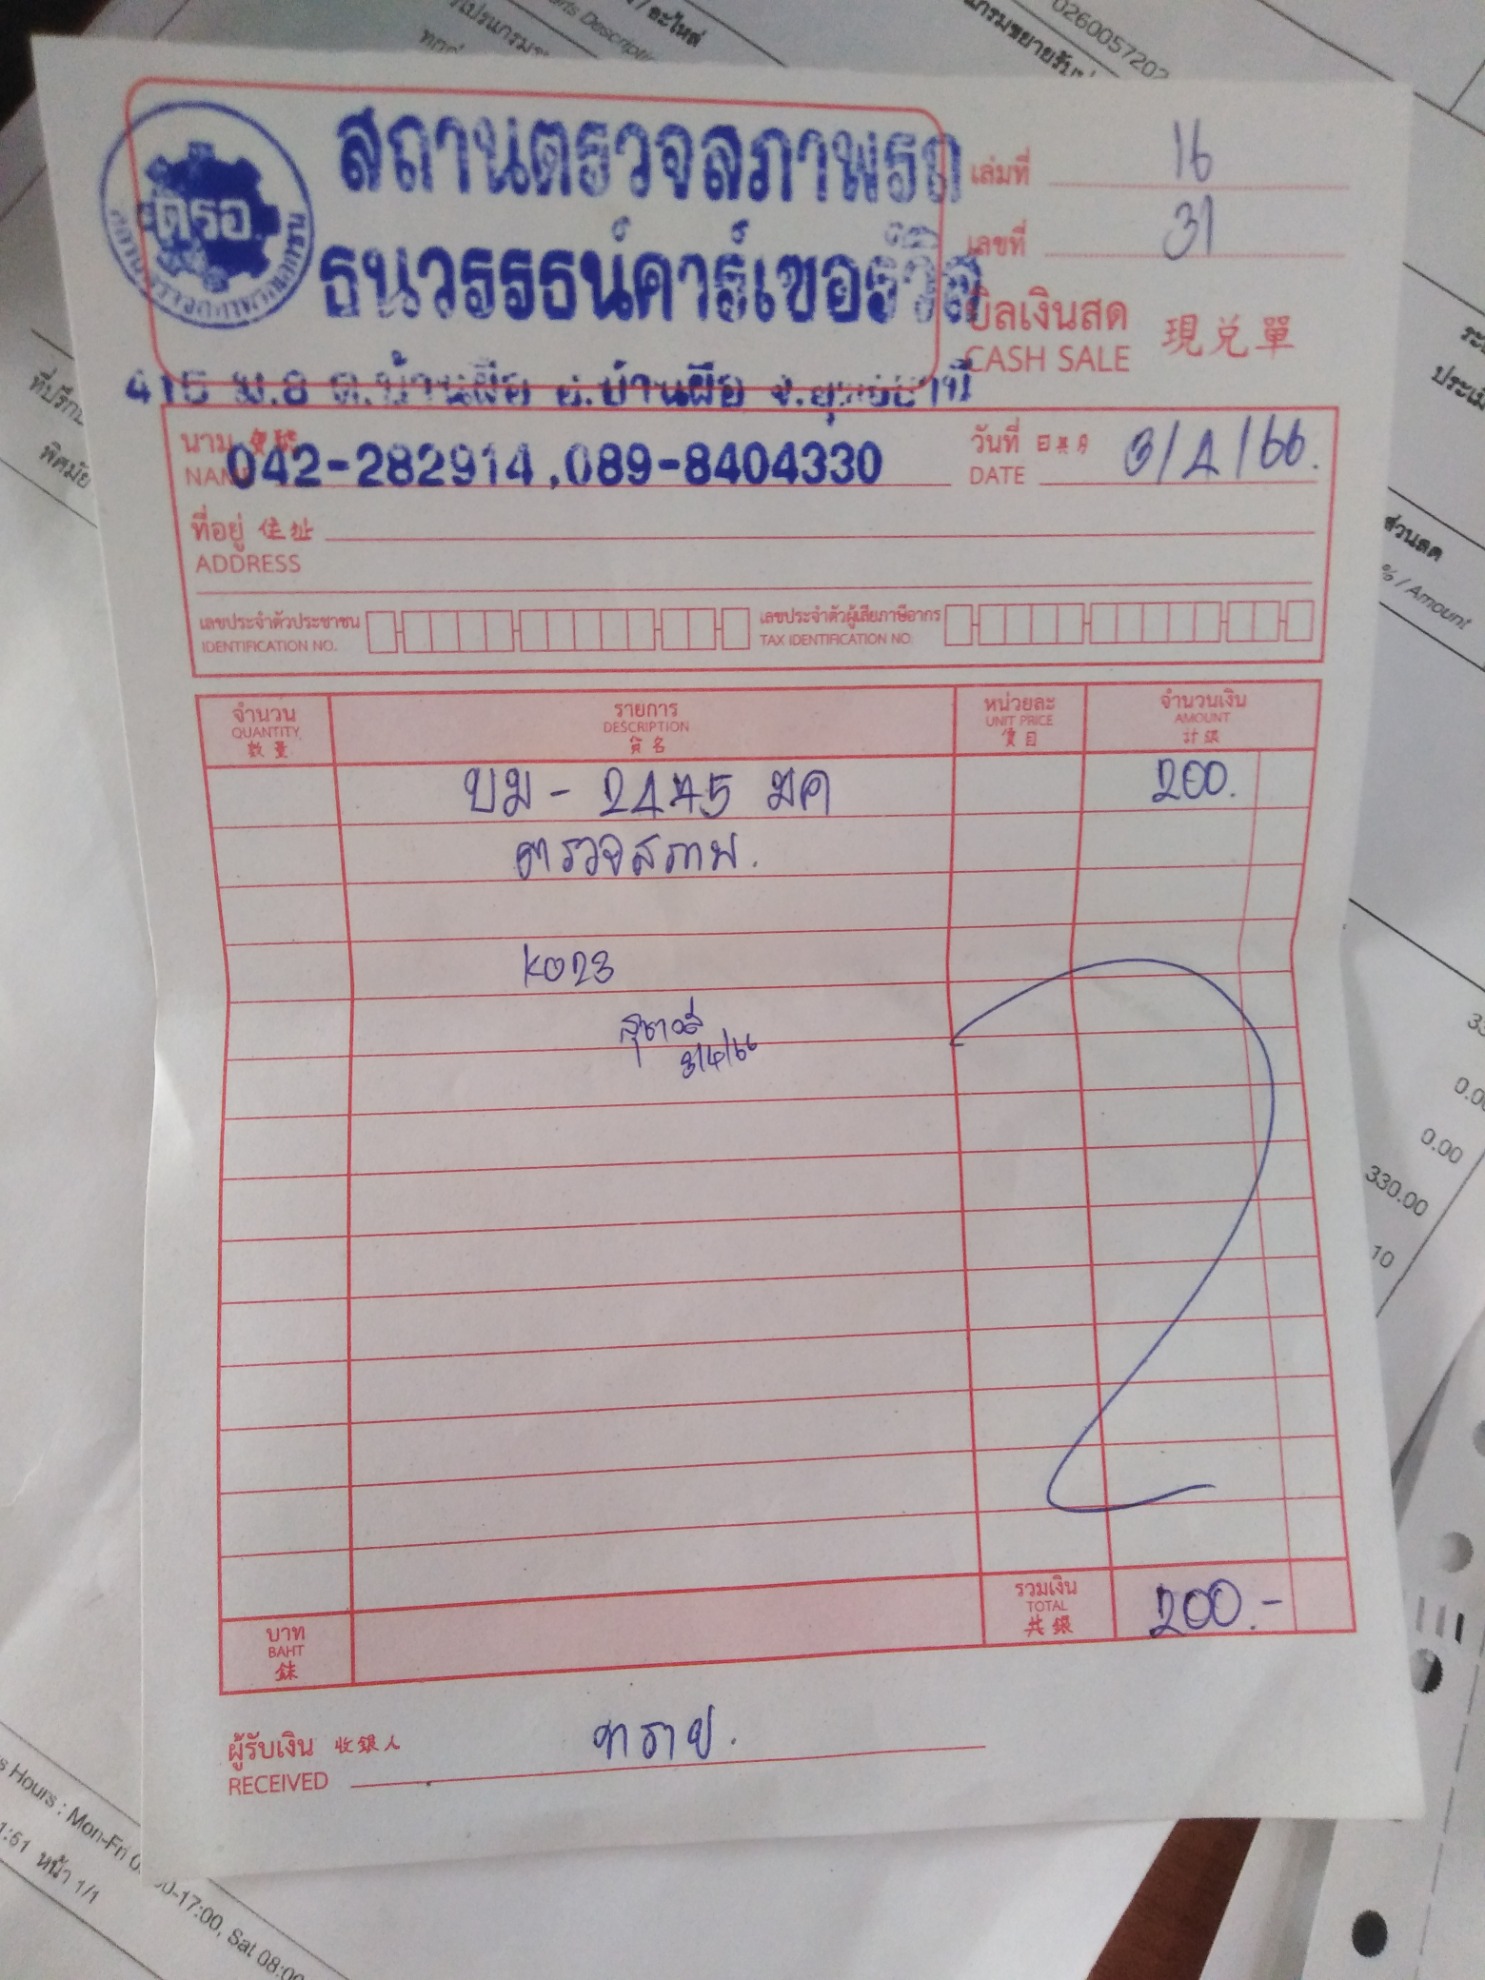 สถานตรวจสภาพรถ
ธนวรรธน์คาร์เซอร์วิส
ตรอ.
415 ม.8 ต.บ้านผือ อ.บ้านผือ จ.อุดรธานี
042-282914,089-8404330
เล่มที่ 16
เลขที่ 31
บิลเงินสด 現兑單
CASH SALE
นาม
NAME
วันที่ 3/4/66.
DATE
ที่อยู่ 住址
ADDRESS
เลขประจำตัวประชาชน เลขประจำตัวผู้เสียภาษีอากร
IDENTIFICATION NO. TAX IDENTIFICATION NO.
จำนวน รายการ หน่วยละ จำนวนเงิน
QUANTITY DESCRIPTION UNIT PRICE AMOUNT
數量 貨名 價目 計銀
บม - 2475 มค 200.
ตรวจสภาพ.
K023
3/4/66
รวมเงิน 200.-
TOTAL
共銀
บาท
BAHT
銖
ผู้รับเงิน 收銀人
RECEIVED
อะไหล่
0260057202
ที่ปรึกษ
พิศมัย
ประเมิ
ส่วนลด
% / Amount
0.00
330.00
10
s Hours : Mon-Fri 0 0-17:00, Sat 08:0
1:51 หน้า 1/1